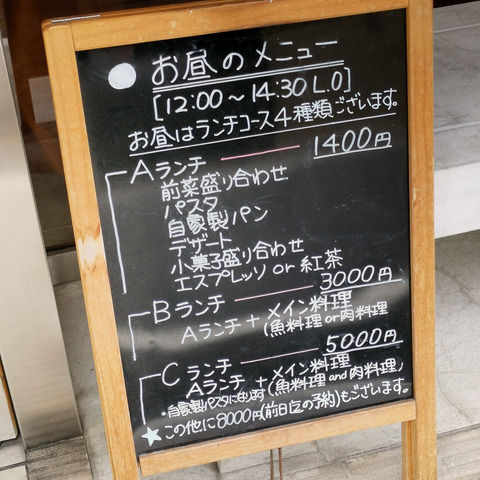 お昼のメニュー
[12:00〜14:30 L.O]
お昼はランチコース4種類ございます。
Aランチ 1400円
前菜盛り合わせ
パスタ
自家製パン
デザート
小菓子盛り合わせ
エスプレッソor紅茶
Bランチ 3000円
Aランチ+メイン料理
(魚料理or肉料理)
Cランチ 5000円
Aランチ+メイン料理
(魚料理and肉料理)
・自家製パスタになります
★この他に8000円(前日迄の予約)もございます。